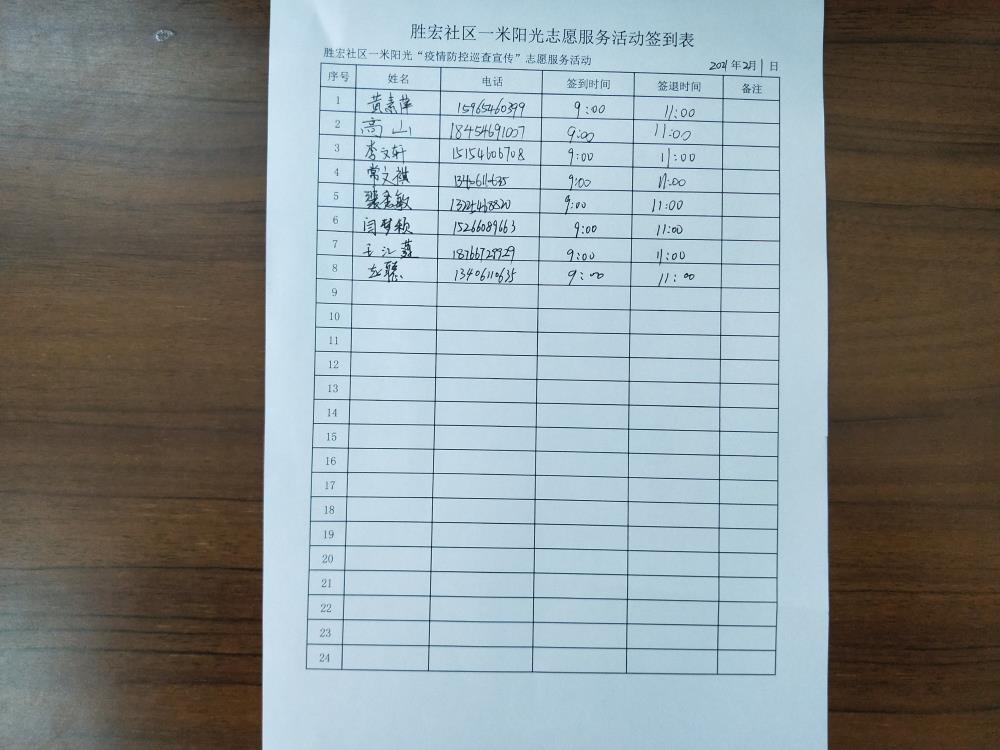 胜宏社区一米阳光志愿服务活动签到表
胜宏社区一米阳光“疫情防控巡查宣传”志愿服务活动 2021年2月1日
序号 姓名 电话 签到时间 签退时间 备注
1 黄素萍 15965460399 9:00 11:00
2 高山 18454691007 9:00 11:00
3 李文轩 15154606708 9:00 11:00
4 常文祺 9:00 11:00
5 9:00 11:00
6 闫梦颖 15266089663 9:00 11:00
7 王汇蕊 18766729929 9:00 11:00
8 赵聪 13406110635 9:00 11:00
9
10
11
12
13
14
15
16
17
18
19
20
21
22
23
24